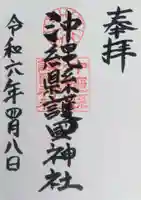 奉拝
沖縄縣護國神社
令和六年四月八日